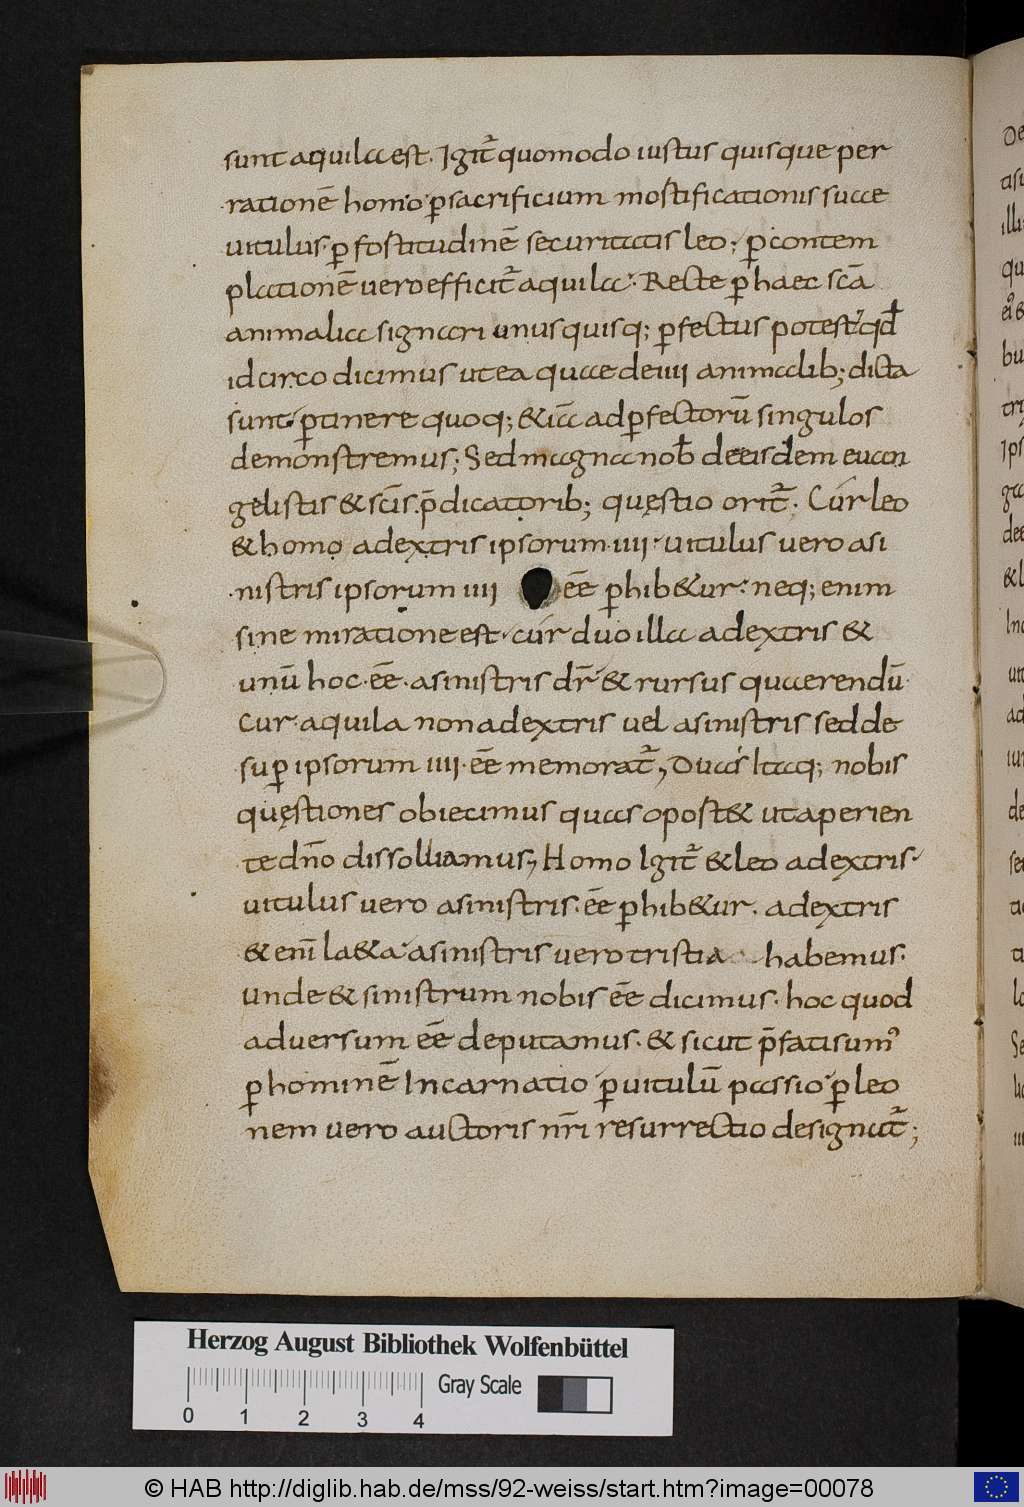 sunt aquila est. Igit᷑ quomodo iustus quisque per
rationē homo ꝑ sacrificium mortificationis suae
uitulus· ꝑ fortitudinē securitatis leo; ꝑ contem
plationē uero efficit᷑ aquila· Recte ꝑ haec sc̄a
animalia signari unus quisq; ꝑfectus potest· qđ
idcirco dicimus ut ea quae de iiii animalib; dicta
sunt· ꝑtinere quoq; & iā ad ꝑfectorū singulos
demonstremus; Sed magna noƀ de eisdem euan
gelistis & sc̄is p̄dicatorib; quęstio orit᷑· Cur leo
& homo adextris ipsorum· iiii· uitulus uero asi
nistris ipsorum iiii ēē ꝑhib&ur· neq; enim
sine miratione est· cur duo illa adextris &
unū hoc· ēē· asinistris dr̄· & rursus quaerendū·
cur· aquila non adextris uel asinistris sed de
suꝑ ipsorum iiii· ēē memorat᷑, Duas itaq; nobis
quęstiones obiecimus quas oport& ut aperien
te dn̄o dissolliamus, Homo Igit᷑ & leo adextris·
uitulus uero asinistris· ēē ꝑhib&ur· adextris
& enī la&a· asinistris uero tristia habemus·
unde & sinistrum nobis ēē dicimus· hoc quod
aduersum ēē deputamus· & sicut p̄fati sum᾿
ꝑ hominē Incarnatio ꝑ uitulū passio· ꝑ leo
nem uero auctoris nr̄i resurrectio designat᷑;
De
illu
qu
bu
Ips
de
& l
Herzog August Bibliothek Wolfenbüttel
Gray Scale
0 1 2 3 4
© HAB http://diglib.hab.de/mss/92-weiss/start.htm?image=00078